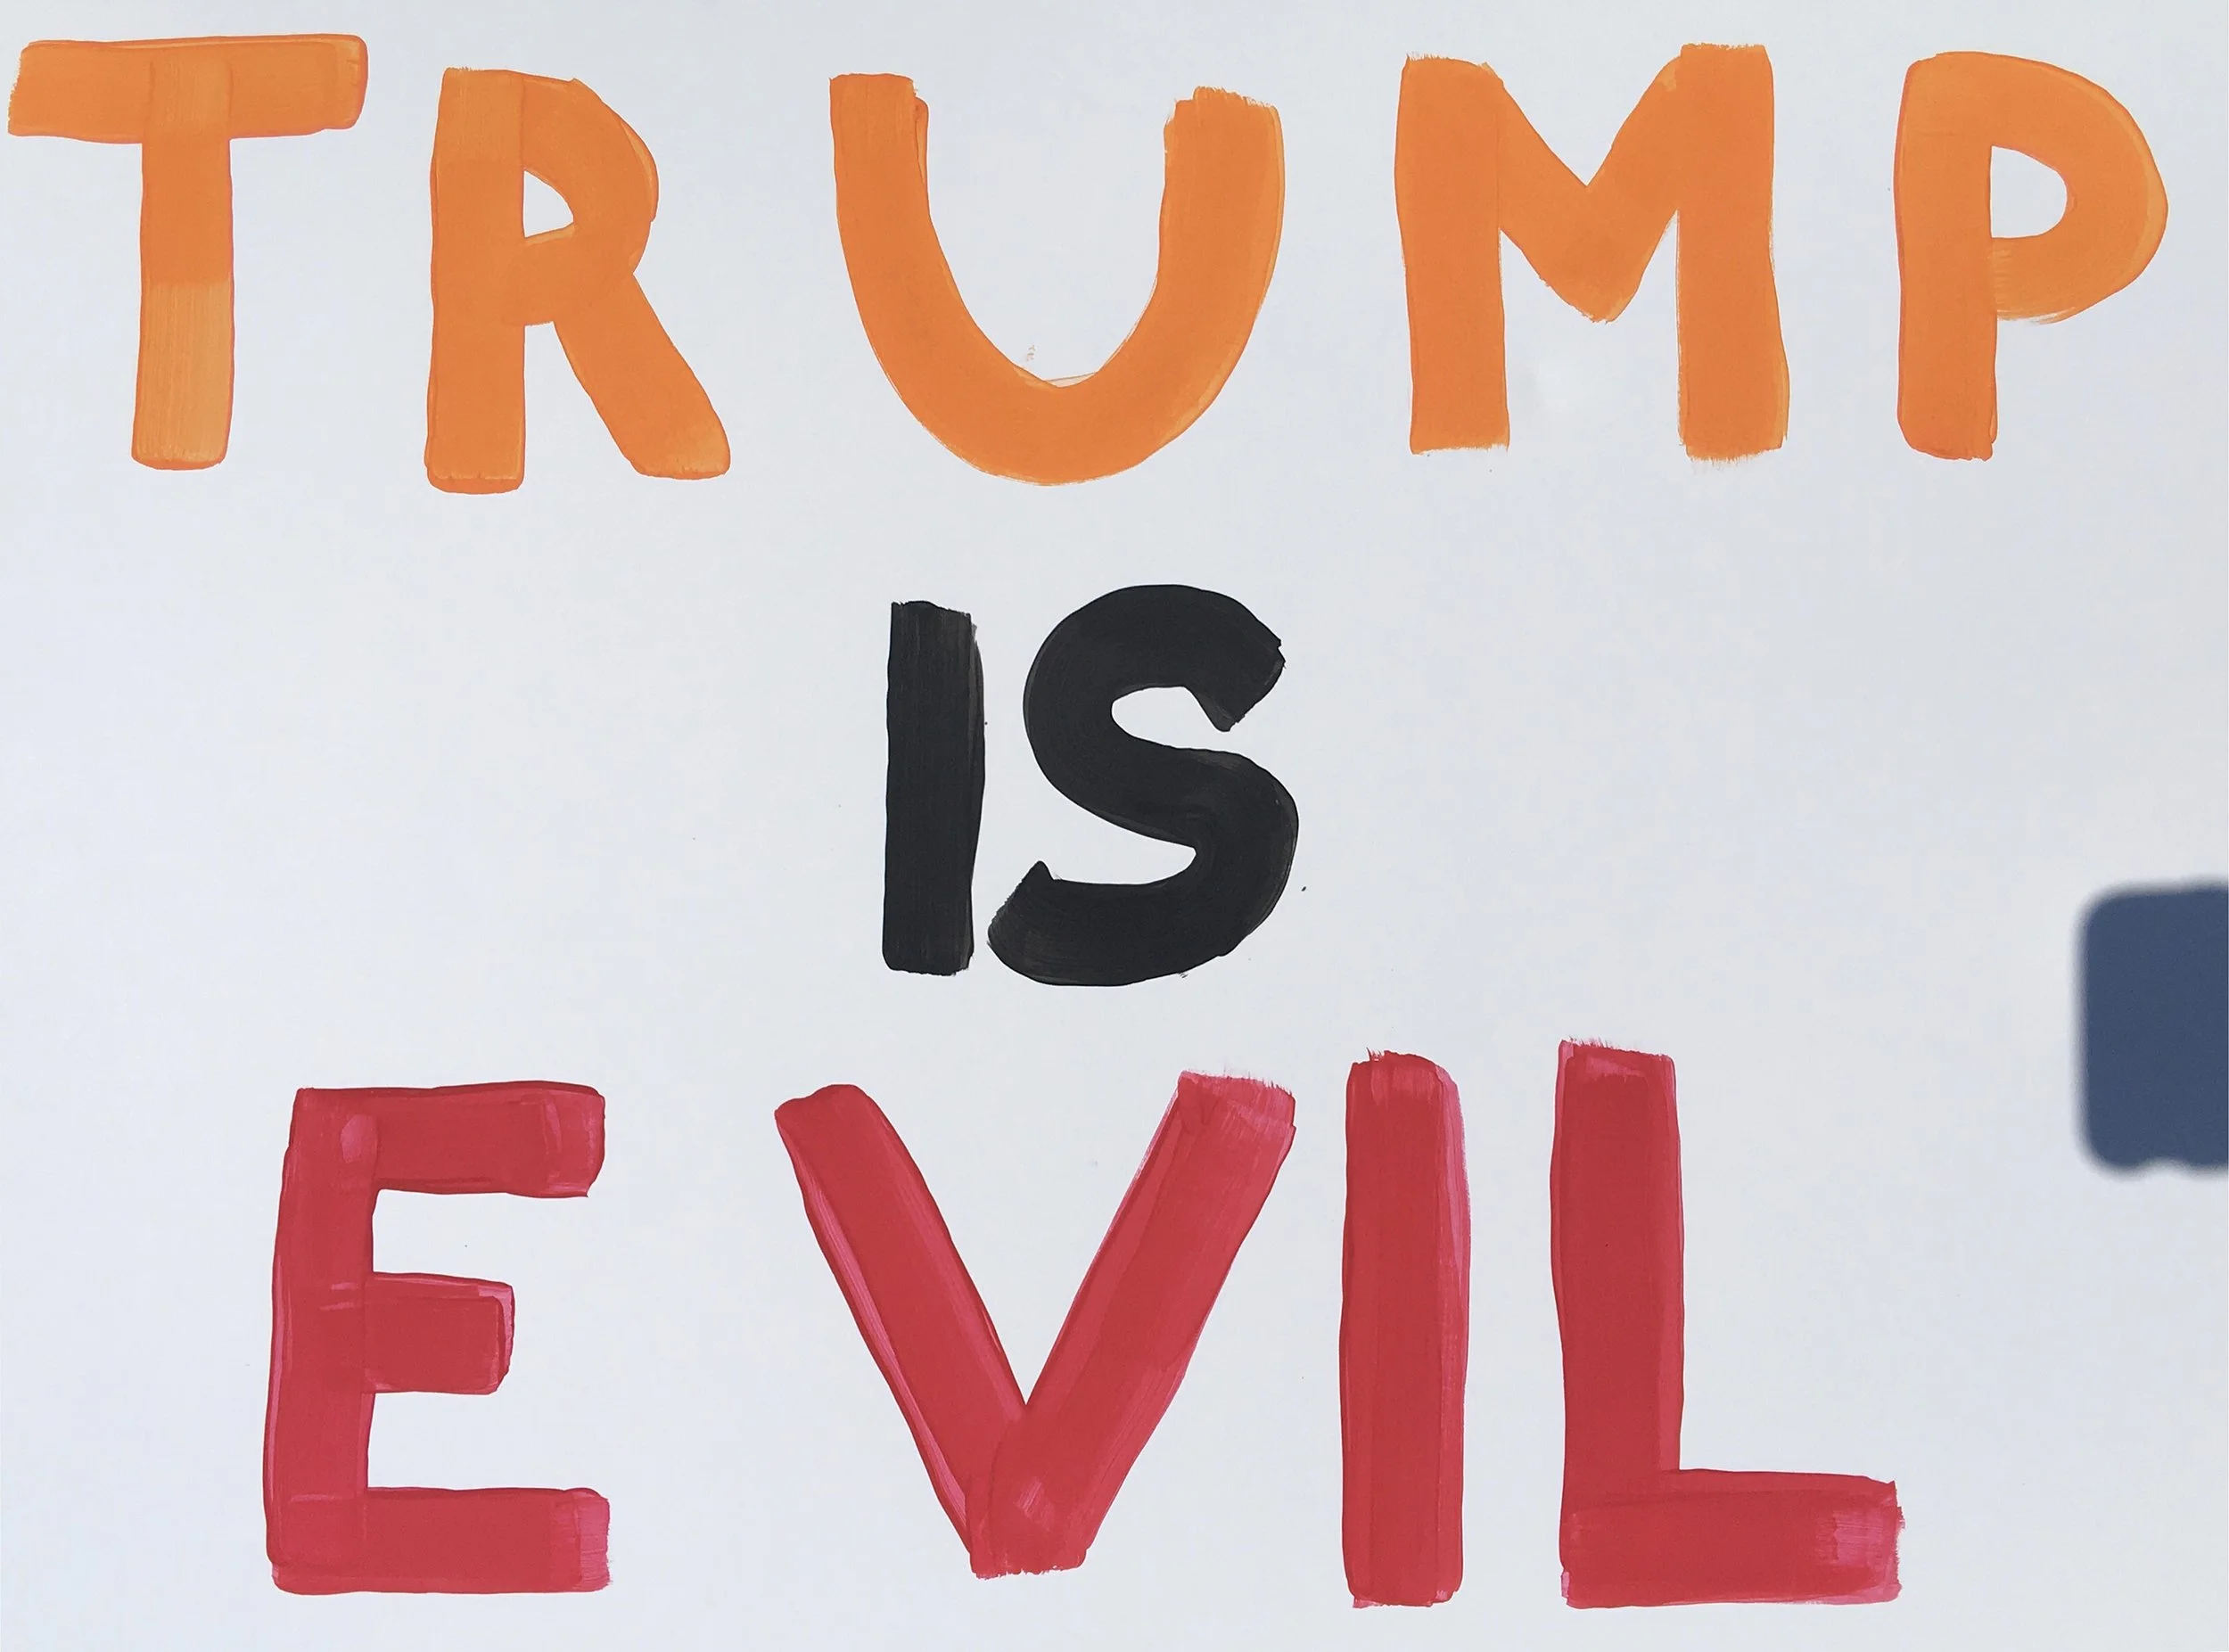 TRUMP
IS
EVIL